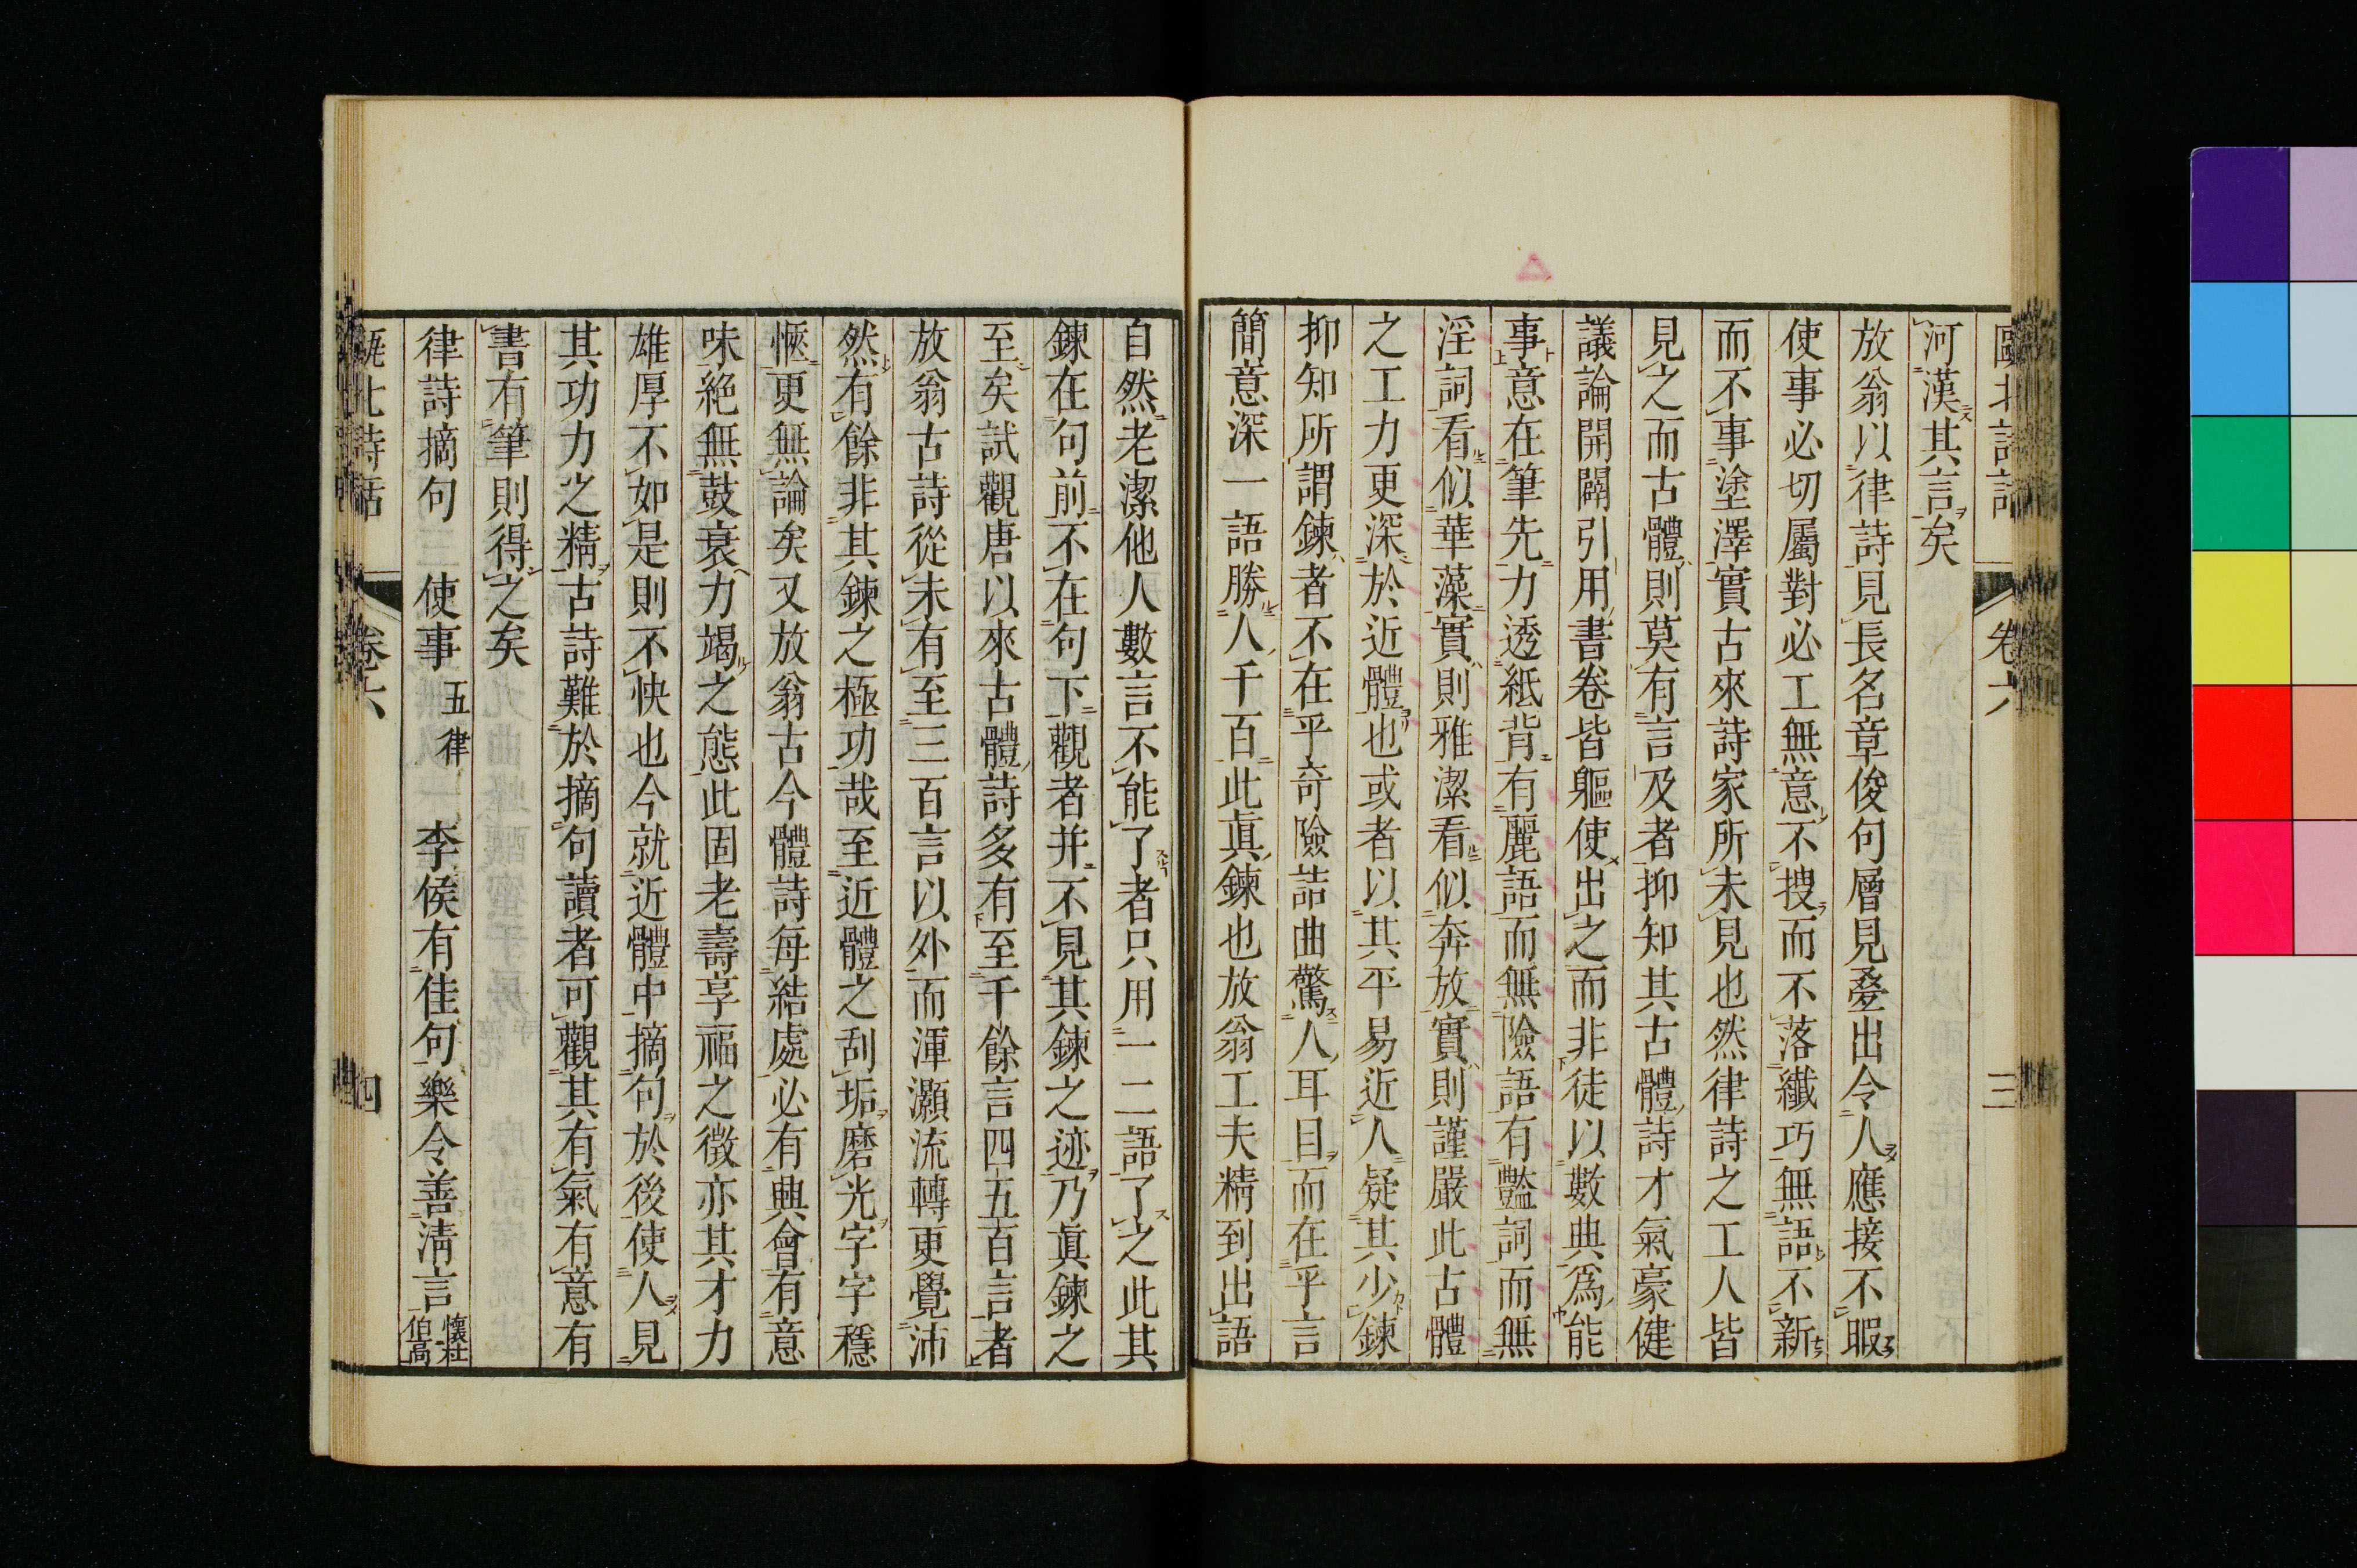 甌北詩話 卷六 三
河漢其言矣
放翁以律詩見長名章俊句層見疊出令人應接不暇
使事必切屬對必工無意不搜而不落纖巧無語不新
而不事塗澤實古來詩家所未見也然律詩之工人皆
見之而古體則莫有言及者抑知其古體詩才氣豪健
議論開闢引用書卷皆驅使出之而非徒以數典爲能
事意在筆先力透紙背有麗語而無險語有豔詞而無
淫詞看似華藻實則雅潔看似奔放實則謹嚴此古體
之工力更深於近體也或者以其平易近人疑其少鍊
抑知所謂鍊者不在乎奇險詰曲驚人耳目而在乎言
簡意深一語勝人千百此眞鍊也放翁工夫精到出語
自然老潔他人數言不能了者只用一二語了之此其
鍊在句前不在句下觀者并不見其鍊之迹乃眞鍊之
至矣試觀唐以來古體詩多有至千餘言四五百言者
放翁古詩從未有至三百言以外而渾灝流轉更覺沛
然有餘非其鍊之極功哉至近體之刮垢磨光字字穩
愜更無論矣又放翁古今體詩每結處必有興會有意
味絕無鼓衰力竭之態此固老壽享福之徵亦其才力
雄厚不如是則不快也今就近體中摘句於後使人見
其功力之精古詩難於摘句讀者可觀其有氣有意有
書有筆則得之矣
律詩摘句 使事 五律 李侯有佳句樂令善淸言 懷杜伯高
甌北詩話 卷六 四